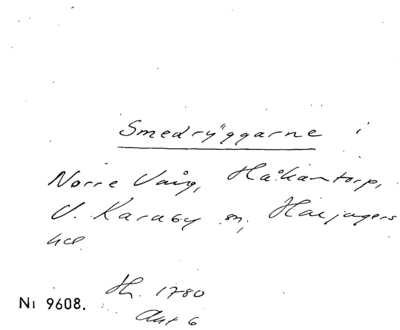 Smedryggarne i
Norre Vång, Håkantorp,
V. Karaby sn, Harjagers
hd.
Th. 1780
Akt 6
Nı 9608.